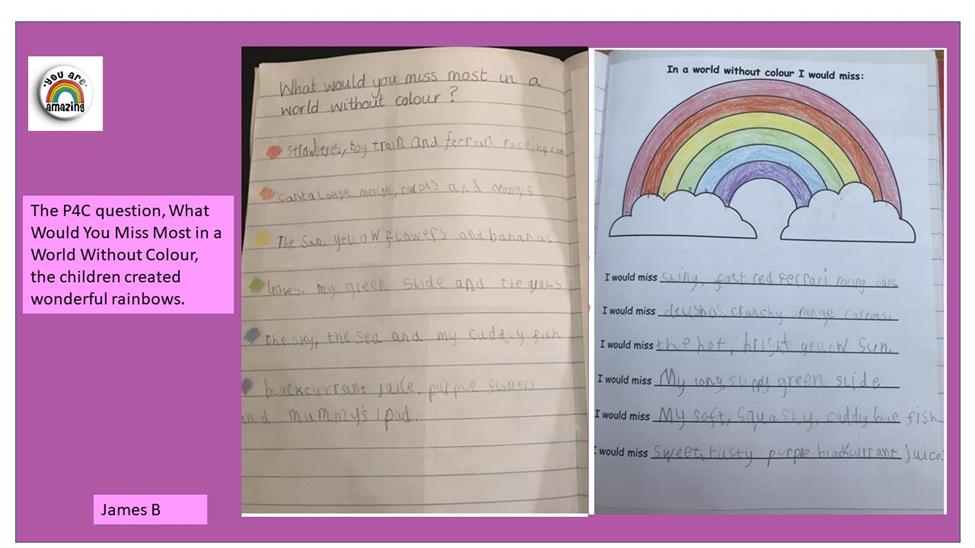 you are
amazing
The P4C question, What
Would You Miss Most in a
World Without Colour,
the children created
wonderful rainbows.
James B
What would you miss most in a
world without colour?
strawberes, toy train and ferrari raceing cars
cantalompe melion, carots and oranges
The Sun, yellow flowers and bananas
leaves, my green slide and the grass
the sky, the sea and my cuddly fish
blackcurrant juice, purple flowers
and mummy's ipad.
In a world without colour I would miss:
I would miss shiny, fast red ferrari racing cars
I would miss crunchy orange carrots.
I would miss the hot, bright yellow sun.
I would miss My long, slippy green slide
I would miss My soft, squashy, cuddly blue fish
I would miss sweet, tasty purple blackcurrant juice.